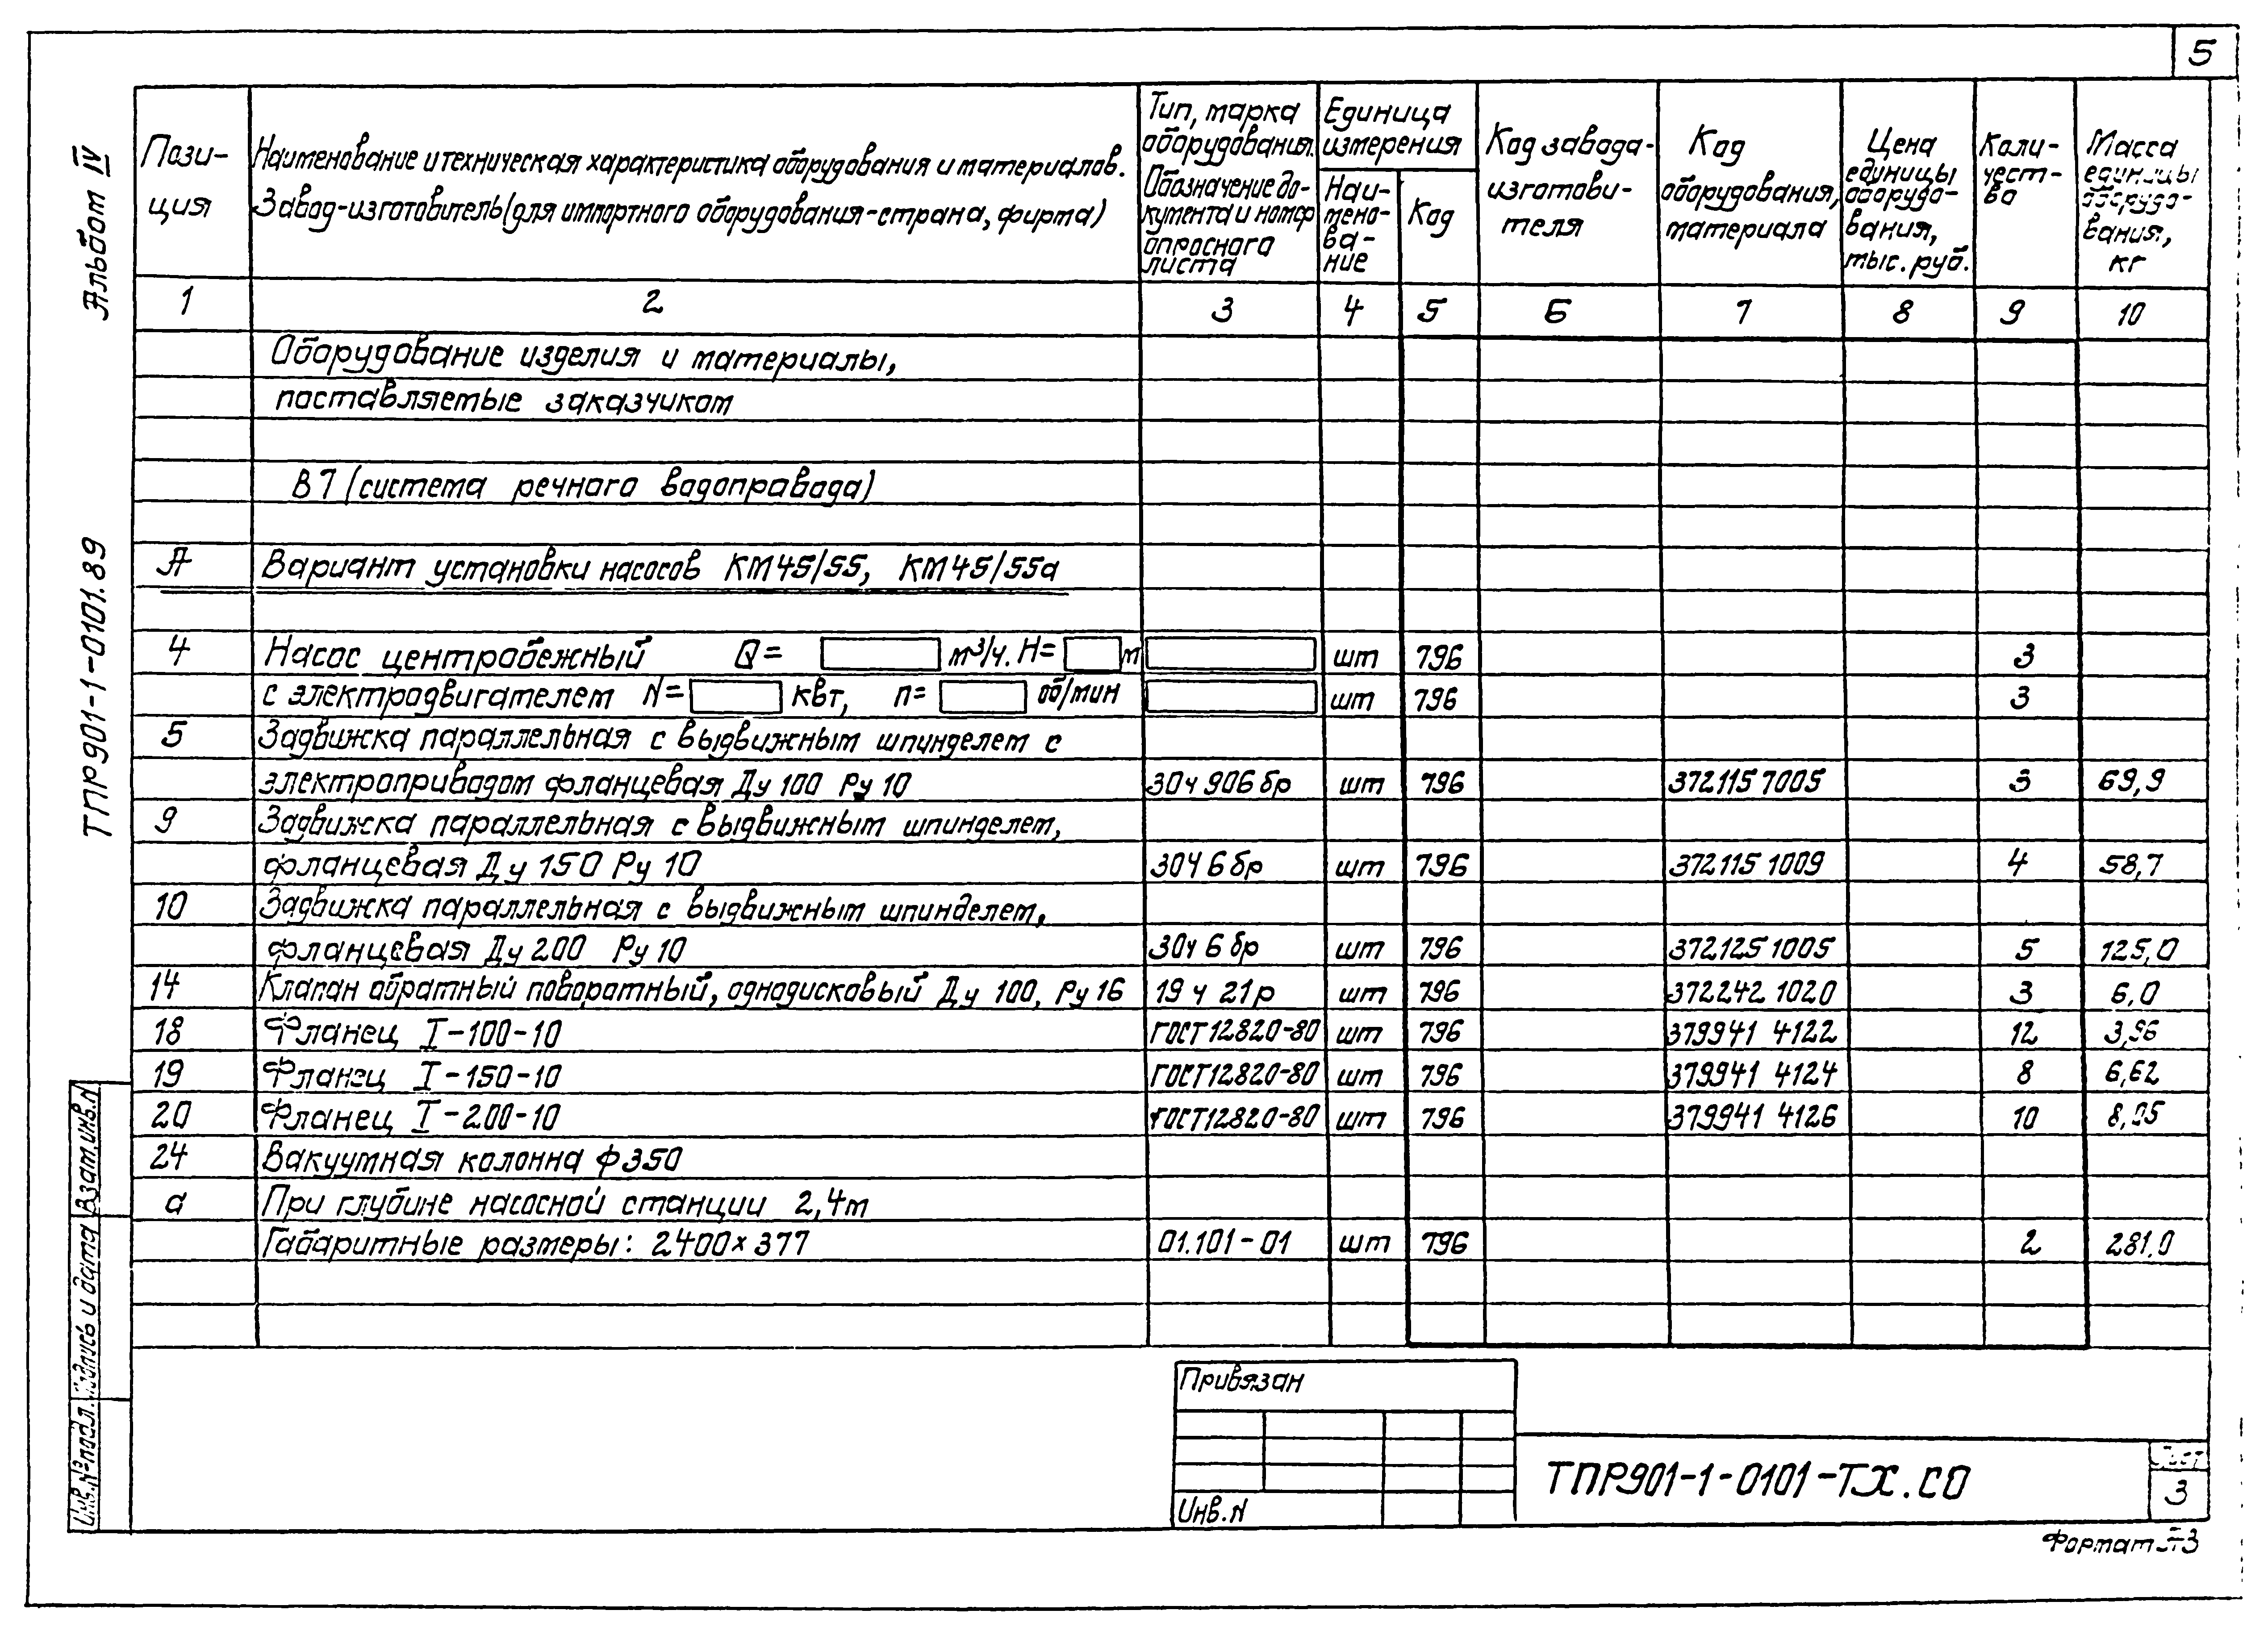 5
Альбом IV
ТПР901-1-0101.89
Пози-
ция
Наименование и техническая характеристика оборудования и материалов.
Завод-изготовитель (для импортного оборудования-страна, фирма)
Тип, марка
оборудования.
Обозначение до-
кумента и номер
опросного
листа
Единица
измерения
Наи-
мено-
ва-
ние
Код
Код завода-
изготови-
теля
Код
оборудования,
материала
Цена
единицы
оборудо-
вания,
тыс. руб.
Коли-
чест-
во
Масса
единицы
оборудо-
вания,
кг
1 2 3 4 5 6 7 8 9 10
Оборудование изделия и материалы,
поставляемые заказчиком
В7 (система речного водопровода)
А Вариант установки насосов КМ45/55, КМ45/55а
4 Насос центробежный Q= м³/ч. Н= м шт 796 3
с электродвигателем N= квт, n= об/мин шт 796 3
5 Задвижка параллельная с выдвижным шпинделем с
электроприводом фланцевая Ду 100 Ру 10 30ч 906 бр шт 796 372115 7005 3 69,9
9 Задвижка параллельная с выдвижным шпинделем,
фланцевая Ду 150 Ру 10 30ч 6 бр шт 796 372115 1009 4 58,7
10 Задвижка параллельная с выдвижным шпинделем,
фланцевая Ду 200 Ру 10 30ч 6 бр шт 796 372125 1005 5 125,0
14 Клапан обратный поворотный, однодисковый Ду 100, Ру 16 19 ч 21р шт 796 372242 1020 3 6,0
18 Фланец I-100-10 ГОСТ 12820-80 шт 796 379941 4122 12 3,96
19 Фланец I-150-10 ГОСТ 12820-80 шт 796 379941 4124 8 6,62
20 Фланец I-200-10 ГОСТ 12820-80 шт 796 379941 4126 10 8,05
24 Вакуумная колонна ф350
а При глубине насосной станции 2,4м
Габаритные размеры: 2400×377 01.101-01 шт 796 2 281,0
Взам.инв.N
Подпись и дата
Инв.№подл.
Привязан
Инв.N
ТПР901-1-0101-ТХ.СО
Лист
3
Формат А3